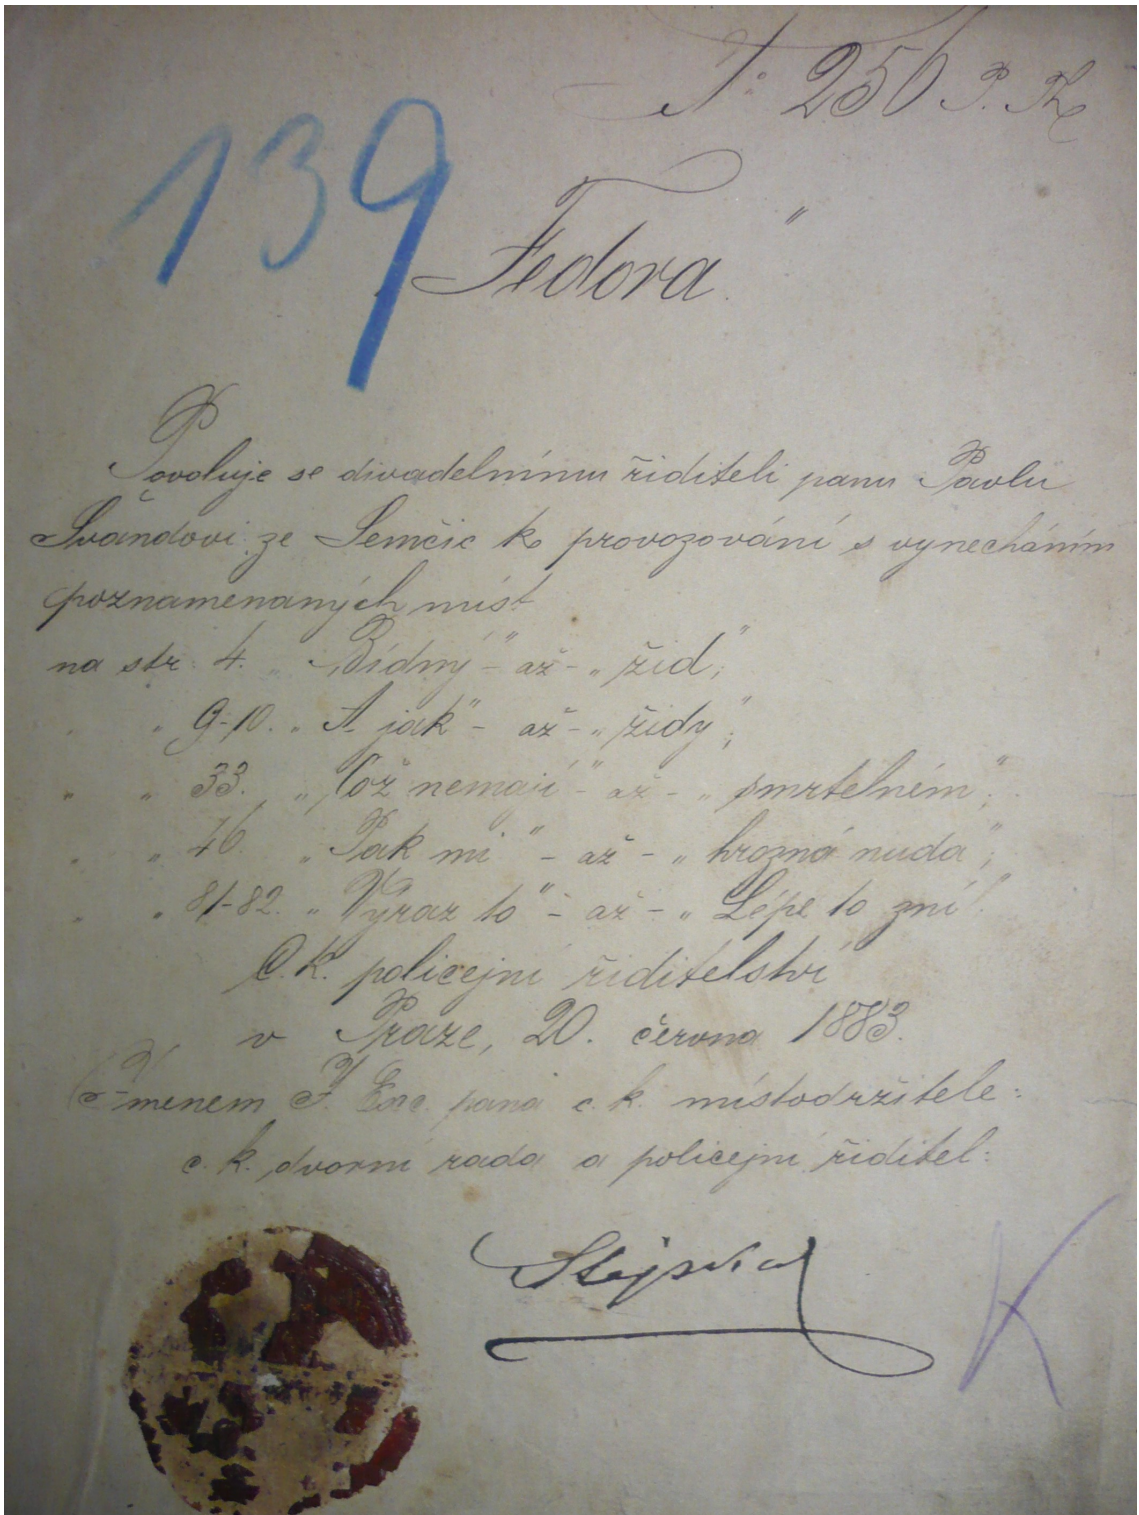 N: 256 P. Ř.
139
Fedora"
Povoluje se divadelnímu řiditeli panu Pavlu
Švandovi ze Semčic k provozování s vynecháním
poznamenaných míst
na str. 4. „Bídný" - až - „žid";
" " 9-10. „A jak" - až - „židy";
" " 33. „Což nemají" - až - „smrtelném";
" " 46. „Pak mi" - až - „hrozná nuda";
" " 81-82. „Výraz to" - až - „Lépe to zní".
C. k. policejní řiditelství
v Praze, 20. června 1883.
Jmenem J. Exc. pana c. k. místodržitele:
c. k. dvorní rada a policejní řiditel:
Stejskal
K